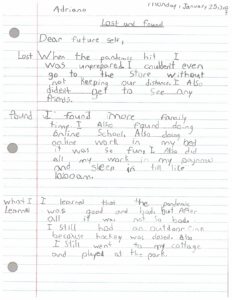 Adriano
Monday, January 25, 202
Lost and found
Dear future self,
Lost When the pandemic hit I
was unprepared. I couldent even
go to the store without
not keeping our distance. I Also
dident get to see any
friends.
found I found more family
time. I Also found doing
online School. Also doing
online work in my bed
it was so fun. I Also did
all my work in my pajamas
and I sleep in till like
10:00am.
what I I learned that the pandemic
learned was good and bad. But After
all it was not so bad.
I Still had an outdoor rink
because hockey was closed. Also
I Still went to my cottage
and played at the park.